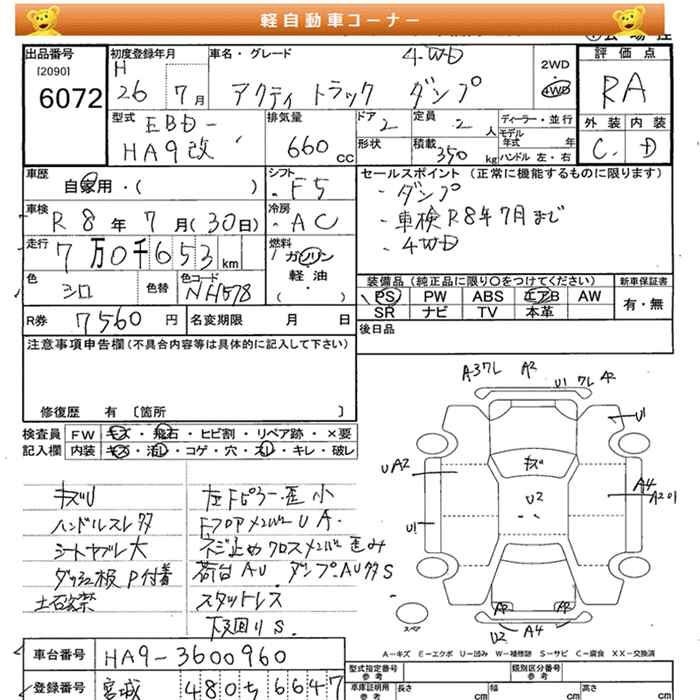 軽自動車コーナー
出品番号 初度登録年月 車名・グレード 4WD 2WD 評価点
[2090] H
6072 26 7月 アクティ トラック ダンプ 4WD RA
型式 EBD- 排気量 ドア 2 定員 2 人 ディーラー・並行 外装 内装
HA9改 660 CC 形状 積載 350 kg モデル年式 年 ハンドル 左・右 C D
車歴 自家用・( ) シフト F5 セールスポイント (正常に機能するものに限ります)
・ダンプ
車検 R8年7月(30日) 冷房 AC ・車検R8年7月まで
走行 7万0千653km 燃料 ガソリン ・4WD
軽・油
( )
色 シロ 色替 色コード NH578 装備品(純正品に限り〇をつけてください) 新車保証書
PS PW ABS エアB AW 有・無
R券 7560円 名変期限 月 日 SR ナビ TV 本革
注意事項申告欄(不具合内容等は具体的に記入して下さい) 後日品
修復歴 有 〔箇所 〕
検査員 FW キズ・飛石・ヒビ割・リペア跡・×要
記入欄 内装 キズ・汚レ・コゲ・穴・スレ・キレ・破レ
キズU 左Fピラー歪小
ハンドルスレ多 FフロアメンバーUA.
シートヤブレ大 ネジ止めクロスメンバー歪み
ダッシュ板P付着 荷台AU ダンプAUタS
スタットレス
下回りS.
A-37L A2 U1 クレ A2
U1
キズ
UA2 U2 A4
A2 U1
U1
A2 A2
U2 A4
スペア
A-キズ E-エクボ U-凹み W-補修跡 S-サビ C-腐食 XX-交換済
車台番号 HA9-3600960 型式指定番号 類別区分番号
参考 参考
登録番号 宮城 480 5 6647 車庫証明用 長さ cm 幅 cm 高さ cm
参考